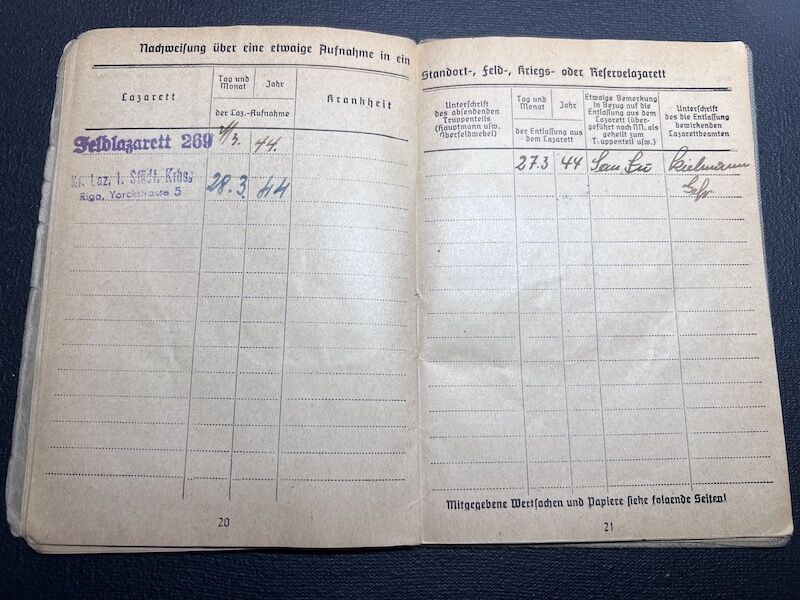 Nachweisung über eine etwaige Aufnahme in ein
Lazarett
Tag und
Monat
Jahr
der Laz.-Aufnahme
Krankheit
Feldlazarett 269
/3. 44.
Kr. Laz. 1. Städt. Krhs,
Riga, Yorckstrasse 5
28.3. 44
20
Standort-, Feld-, Kriegs- oder Reservelazarett
Unterschrift
des absendenden
Truppenteils
(Hauptmann usw.
Oberfeldwebel)
Tag und
Monat
Jahr
der Entlassung aus
dem Lazarett
Etwaige Bemerkung
in Bezug auf die
Entlassung aus dem
Lazarett (über-
geführt nach NN. als
geheilt zum
Truppenteil usw.)
Unterschrift
des die Entlassung
bewirkenden
Lazarettbeamten
27.3 44
Mitgegebene Wertsachen und Papiere siehe folgende Seiten!
21